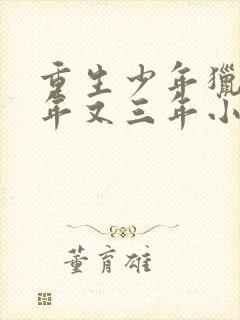 重生少年猎
年又三年小
董育雄